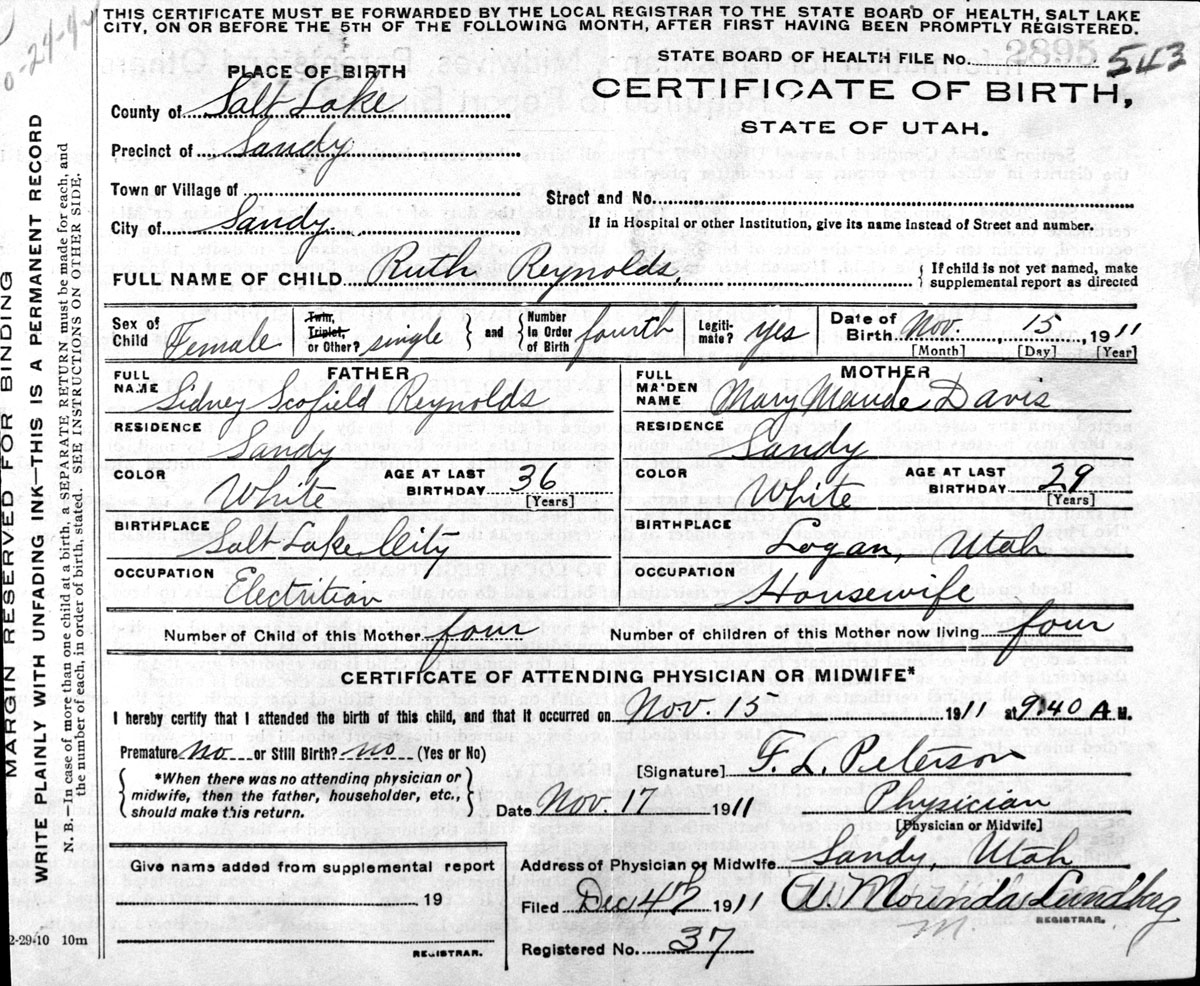 THIS CERTIFICATE MUST BE FORWARDED BY THE LOCAL REGISTRAR TO THE STATE BOARD OF HEALTH, SALT LAKE
CITY, ON OR BEFORE THE 5TH OF THE FOLLOWING MONTH, AFTER FIRST HAVING BEEN PROMPTLY REGISTERED.
STATE BOARD OF HEALTH FILE No. 2895 543
PLACE OF BIRTH
CERTIFICATE OF BIRTH,
STATE OF UTAH.
County of Salt Lake
Precinct of Sandy
Town or Village of
Street and No.
City of Sandy
If in Hospital or other Institution, give its name instead of Street and number.
FULL NAME OF CHILD Ruth Reynolds,
{ If child is not yet named, make
supplemental report as directed
Sex of Child Female
Twin, Triplet, or Other? single } and { Number in Order of Birth fourth
Legiti-mate? yes
Date of Birth Nov. 15, 1911
[Month] [Day] [Year]
FATHER
FULL NAME Sidney Scofield Reynolds
RESIDENCE Sandy
COLOR White AGE AT LAST BIRTHDAY 36 [Years]
BIRTHPLACE Salt Lake City
OCCUPATION Electrition
MOTHER
FULL MAIDEN NAME Mary Maude Davis
RESIDENCE Sandy
COLOR White AGE AT LAST BIRTHDAY 29 [Years]
BIRTHPLACE Logan, Utah
OCCUPATION Housewife
Number of Child of this Mother four Number of children of this Mother now living four
CERTIFICATE OF ATTENDING PHYSICIAN OR MIDWIFE*
I hereby certify that I attended the birth of this child, and that it occurred on Nov. 15 1911 at 9:40 A M.
Premature no or Still Birth? no (Yes or No)
{ *When there was no attending physician or
midwife, then the father, householder, etc.,
should make this return. }
[Signature] F. L. Peterson
Date Nov. 17 1911 Physician
[Physician or Midwife]
Give name added from supplemental report
19
REGISTRAR.
Address of Physician or Midwife Sandy, Utah
Filed Dec 4th 1911
REGISTRAR.
Registered No. 37
MARGIN RESERVED FOR BINDING
WRITE PLAINLY WITH UNFADING INK—THIS IS A PERMANENT RECORD
N. B.—In case of more than one child at a birth, a SEPARATE RETURN must be made for each, and
the number of each, in order of birth, stated. SEE INSTRUCTIONS ON OTHER SIDE.
2-29-10 10m